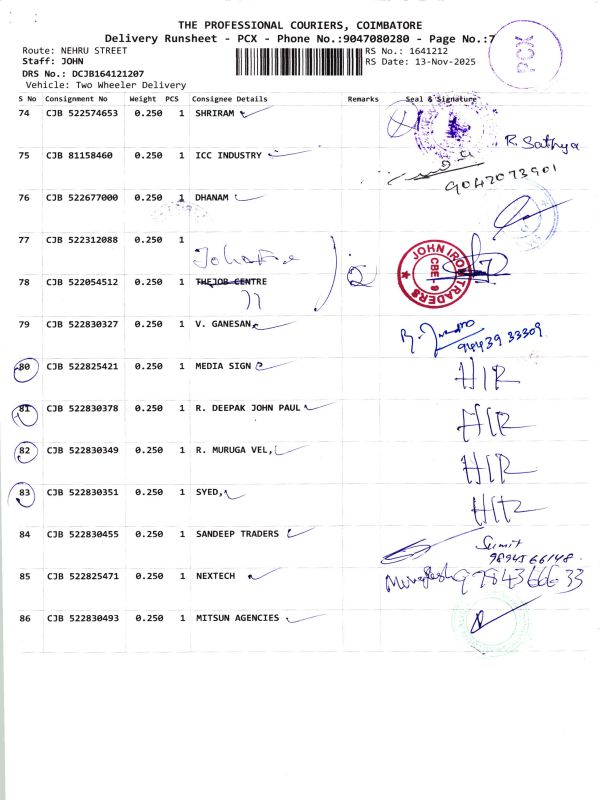 THE PROFESSIONAL COURIERS, COIMBATORE
Delivery Runsheet - PCX - Phone No.:9047080280 - Page No.:7
Route: NEHRU STREET
RS No.: 1641212
Staff: JOHN
RS Date: 13-Nov-2025
DRS No.: DCJB164121207
Vehicle: Two Wheeler Delivery
PCX
S No Consignment No Weight PCS Consignee Details Remarks Seal & Signature
74 CJB 522574653 0.250 1 SHRIRAM
R. Sathya
75 CJB 81158460 0.250 1 ICC INDUSTRY
9042073901
76 CJB 522677000 0.250 1 DHANAM
77 CJB 522312088 0.250 1
JOHN IRON TRADERS
CBE-9
78 CJB 522054512 0.250 1 THEJOB CENTRE
79 CJB 522830327 0.250 1 V. GANESAN
94439 33309
80 CJB 522825421 0.250 1 MEDIA SIGN HIR
81 CJB 522830378 0.250 1 R. DEEPAK JOHN PAUL HIR
82 CJB 522830349 0.250 1 R. MURUGA VEL, HIR
83 CJB 522830351 0.250 1 SYED, HIR
84 CJB 522830455 0.250 1 SANDEEP TRADERS Sumit
85 CJB 522825471 0.250 1 NEXTECH
86 CJB 522830493 0.250 1 MITSUN AGENCIES